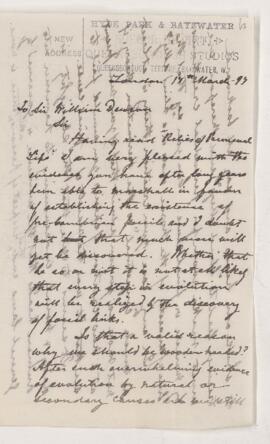 HYDE PARK & BAYSWATER
NEW
ADDRESS
STUDIOS
London 17th March 97
To Sir William Dawson
Sir
Having read "Relics of Primeval
Life" I am very pleased with the
evidence you have after long years
been able to marshall in favour
of establishing the existence of
pre-cambrian fossils and I doubt
not but that much more will
yet be discovered. Whether that
be so or not it is not at all likely
that every step in evolution
will be realized by the discovery
of fossil links.
Is that a valid reason
why we should be wooden headed?
After such overwhelming evidence
of evolution by natural or
secondary causes